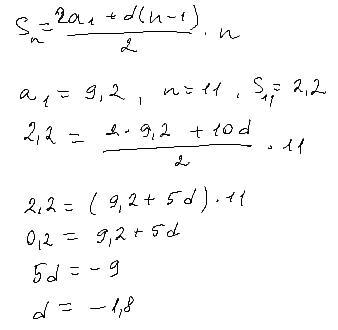 Sₙ = (2a₁ + d(n-1))/2 · n
a₁ = 9,2 , n = 11 , S₁₁ = 2,2
2,2 = (2 · 9,2 + 10d)/2 · 11
2,2 = (9,2 + 5d) · 11
0,2 = 9,2 + 5d
5d = -9
d = -1,8